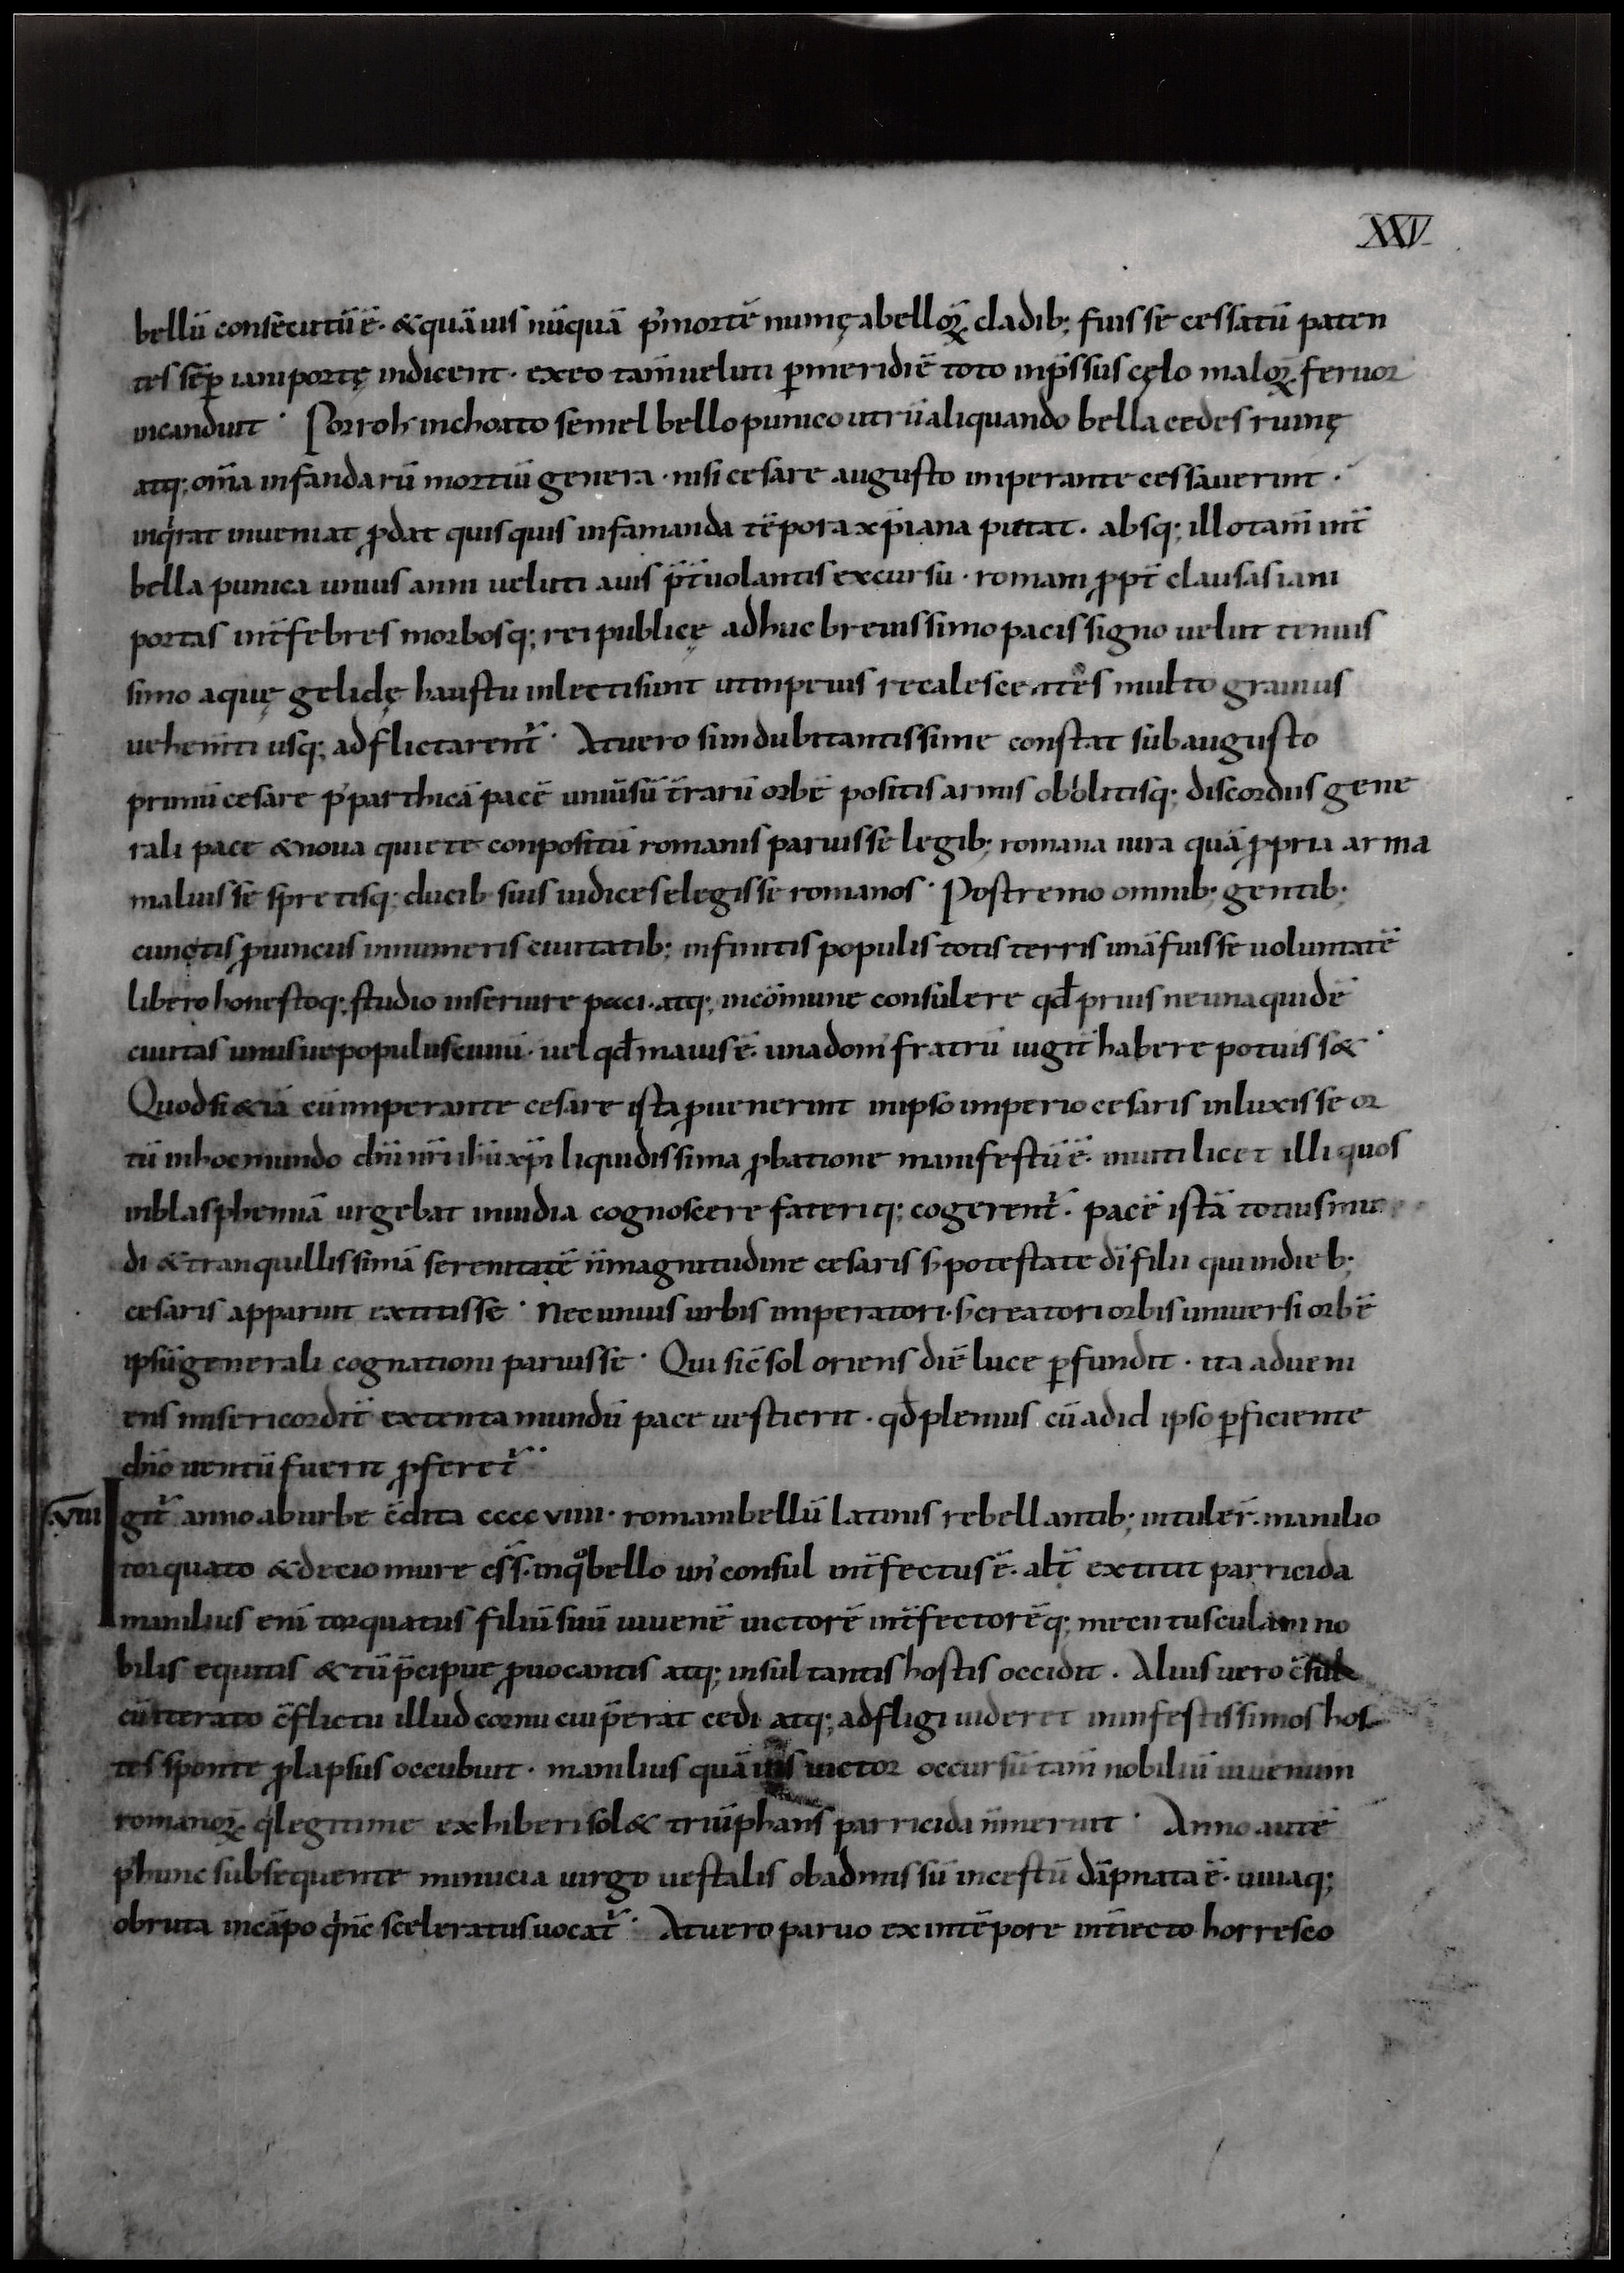 XXV
bellū consecutū ē· & quāuis nūquā p' mortē numę a bellorꝝ cladib; fuisse cessatū paten
tes sēp iani portę indicent· ex eo tam̄ ueluti p̱ meridiē toto inp̄ssus cęlo malorꝝ feruor
incanduit· Porro h' inchoato semel bello punico utrū aliquando bella cedes ruinę
atq; om̄ia infandarū mortiū genera· nisi cesare augusto imperante cessauerint·
inqͥrat inueniat ꝓdat quisquis infamanda tēpora xp̄iana putat· absq; illo tam̄ int̄
bella punica unius anni ueluti auis p̄t̄uolantis excursu· romani ꝓpt̄ clausas iani
portas int̄ febres morbosq; rei publicę adhuc breuissimo pacis signo uelut tenuis
simo aquę gelidę haustu inlecti sunt ut in peius recalescentes multo grauius
uehem̄ti usq; adflictarent᷑· At uero si indubitantissime constat sub augusto
primū cesare p' parthicā pacē uniūsū t̄rarū orbē positis armis obolitisq; discordiis gene
rali pace & noua quiete conpositū romanis paruisse legib; romana iura quā ꝓpria arma
maluisse spretisq; ducib suis iudices elegisse romanos· Postremo omnib; gentib;
cunctis ꝓuinciis innumeris ciuitatib; infinitis populis totis terris unā fuisse uoluntatē
libero honestoq; studio inseruire paci· atq; in cōmune consulere qđ prius ne una quidē
ciuitas unusue populus ciuiū· uel qđ maius ē· una dom' fratrū iugit̄ habere potuiss&·
Quod si & iā cū imperante cesare ista ꝓuenerint in ipso imperio cesaris inluxisse or
tū in hoc mundo dn̄i nr̄i ih̄u xp̄i liquidissima ꝓbatione manifestū ē· inuiti licet illi quos
in blasphemiā urgebat inuidia cognoscere fateriq; cogerent᷑· pacē istā totius mu
di & tranquillissimā serenitatē n̄ magnitudine cesaris s; potestate dī filii qui in dieb;
cesaris apparuit extitisse· Nec unius urbis imperatori· s; creatori orbis uniuersi orbē
ipsū generali cognationi paruisse· Qui sic̄ sol oriens diē luce p̱fundit· ita adueni
ens misericordit̄ extenta mundū pace uestierit· qđ plenius cū ad id ipso p̱ficiente
dn̄o uentū fuerit ꝓferet᷑··
VIII Igit᷑ anno ab urbe c̄dita cccc viiii· romani bellū latinis rebellantib; intuler̄· manilio
torquato & decio mure cs̄s· in qͦ bello un' consul int̄fectus ē· alt̄ extitit parricida
manilius enī torquatus filiū suū iuuenē uictorē int̄fectorēq; meti tusculani no
bilis equitis & tū p̄cipue ꝓuocantis atq; insultantis hostis occidit· Alius uero c̄sul
cū iterato c̄flictu illud cornu cui p̄erat cedi atq; adfligi uideret in infestissimos hos
tes sponte ꝓlapsus occubuit· manilius quāuis uictor occursū tam̄ nobiliū iuuenum
romanorꝝ q' legitime exhiberi sol& triūphans parricida n̄ meruit· Anno autē
p' hunc subsequente minucia uirgo uestalis ob admissū incestū dāpnata ē· uiuaq;
obruta in cāpo qͥ nc̄ sceleratus uocat᷑· At uero paruo exin tēpore int̄iecto horresco